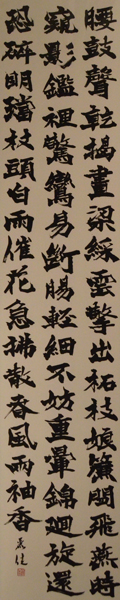 腰鼓聲乾揭畫梁綵雲擎出柘枝娘簾間飛燕時
窺影鑑裡驚鸞易斷腸輕細不妨重暈錦迴旋還
恐碎明璫杖頭白雨催花急拂散春風兩袖香